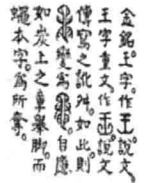 金銘王字作王說文
王字重文作說文
傳寫之訛舛如此則
變爲自應
如炭上之重舉脚而
蠅本字爲所奪